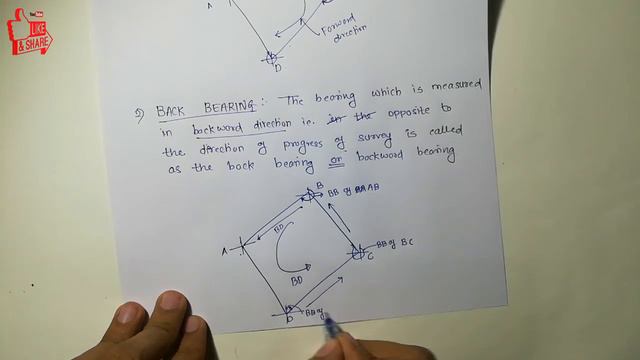 YouTube
LIKE
& SHARE
A
Forward
direction
D
2) BACK BEARING:- The bearing which is measured
in backword direction i.e. in the opposite to
the direction of progress of survey is called
as the back bearing or backword bearing
B
BB of AB
BD
A
BB of BC
C
BD
D
BB of